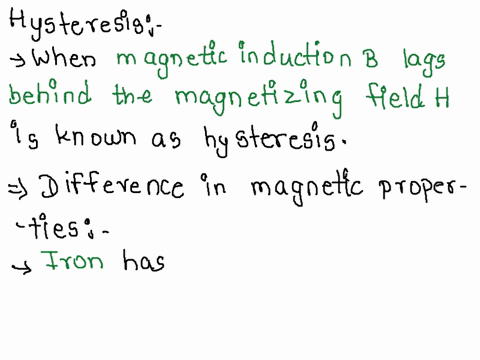 Hysteresis:-
→ When magnetic induction B lags
behind the magnetizing field H
is known as hysteresis.
⇒ Difference in magnetic proper-
-ties:-
→ Iron has